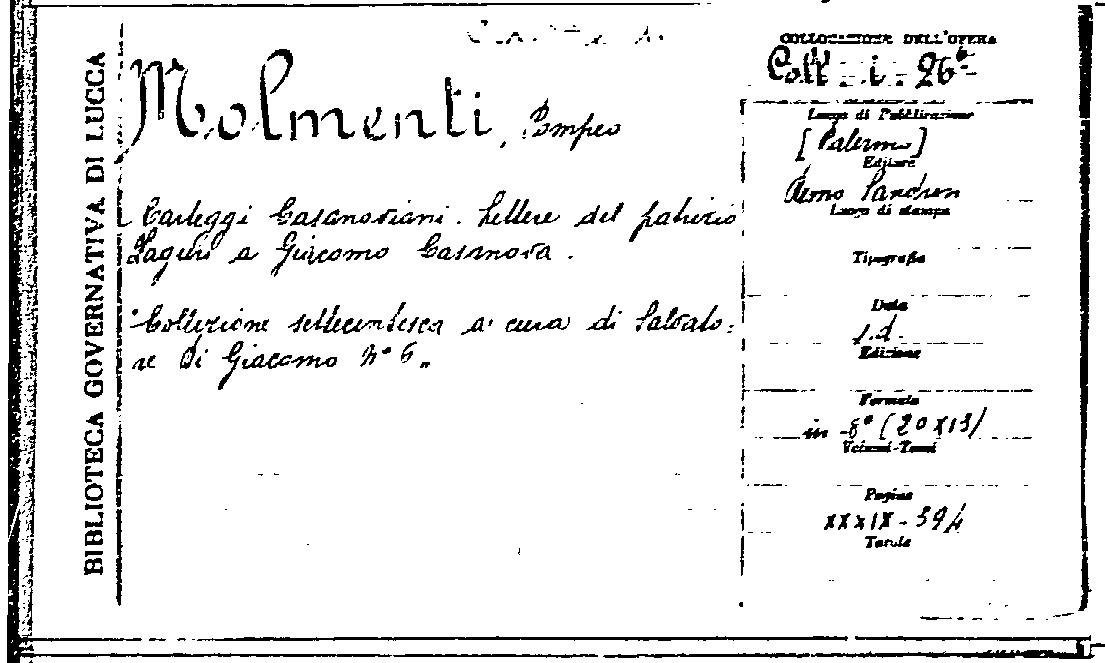 BIBLIOTECA GOVERNATIVA DI LUCCA
Molmenti, Pompeo
Carteggi Casanoviani. Lettere del patrizio
Zaguri a Giacomo Casanova.
"Collezione settecentesca a cura di Salvato=
re di Giacomo N° 6"
COLLOCAZIONE DELL'OPERA
Coll. i. 26
Luogo di Pubblicazione
[Palermo]
Editore
Remo Sandron
Luogo di stampa
Tipografia
Data
s.d.
Edizione
Formato
in -8° (20x13)
Volumi-Tomi
Pagine
XXXIX - 394
Tavole